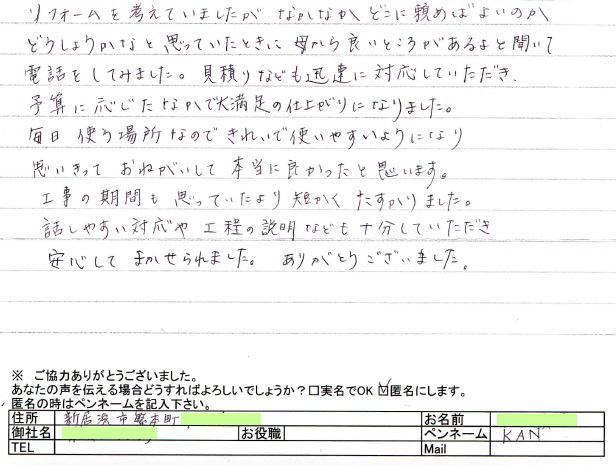 リフォームを考えていましたが なかなか どこに頼めばよいのか
どうしようかなと思っていたときに 母から良いところがあるよと聞いて
電話をしてみました。見積りなども迅速に対応していただき、
予算に応じたなかで大満足の仕上がりになりました。
毎日使う場所なので きれいで使いやすいようになり
思いきって おねがいして 本当に良かったと思います。
工事の期間も 思っていたより 短かく たすかりました。
話しやすい対応や 工程の説明なども 十分していただき
安心して まかせられました。 ありがとうございました。
※ ご協力ありがとうございました。
あなたの声を伝える場合どうすればよろしいでしょうか？□実名でOK ☑匿名にします。
匿名の時はペンネームを記入下さい。
住所 新居浜市繁本町 お名前
御社名 お役職 ペンネーム KAN
TEL Mail